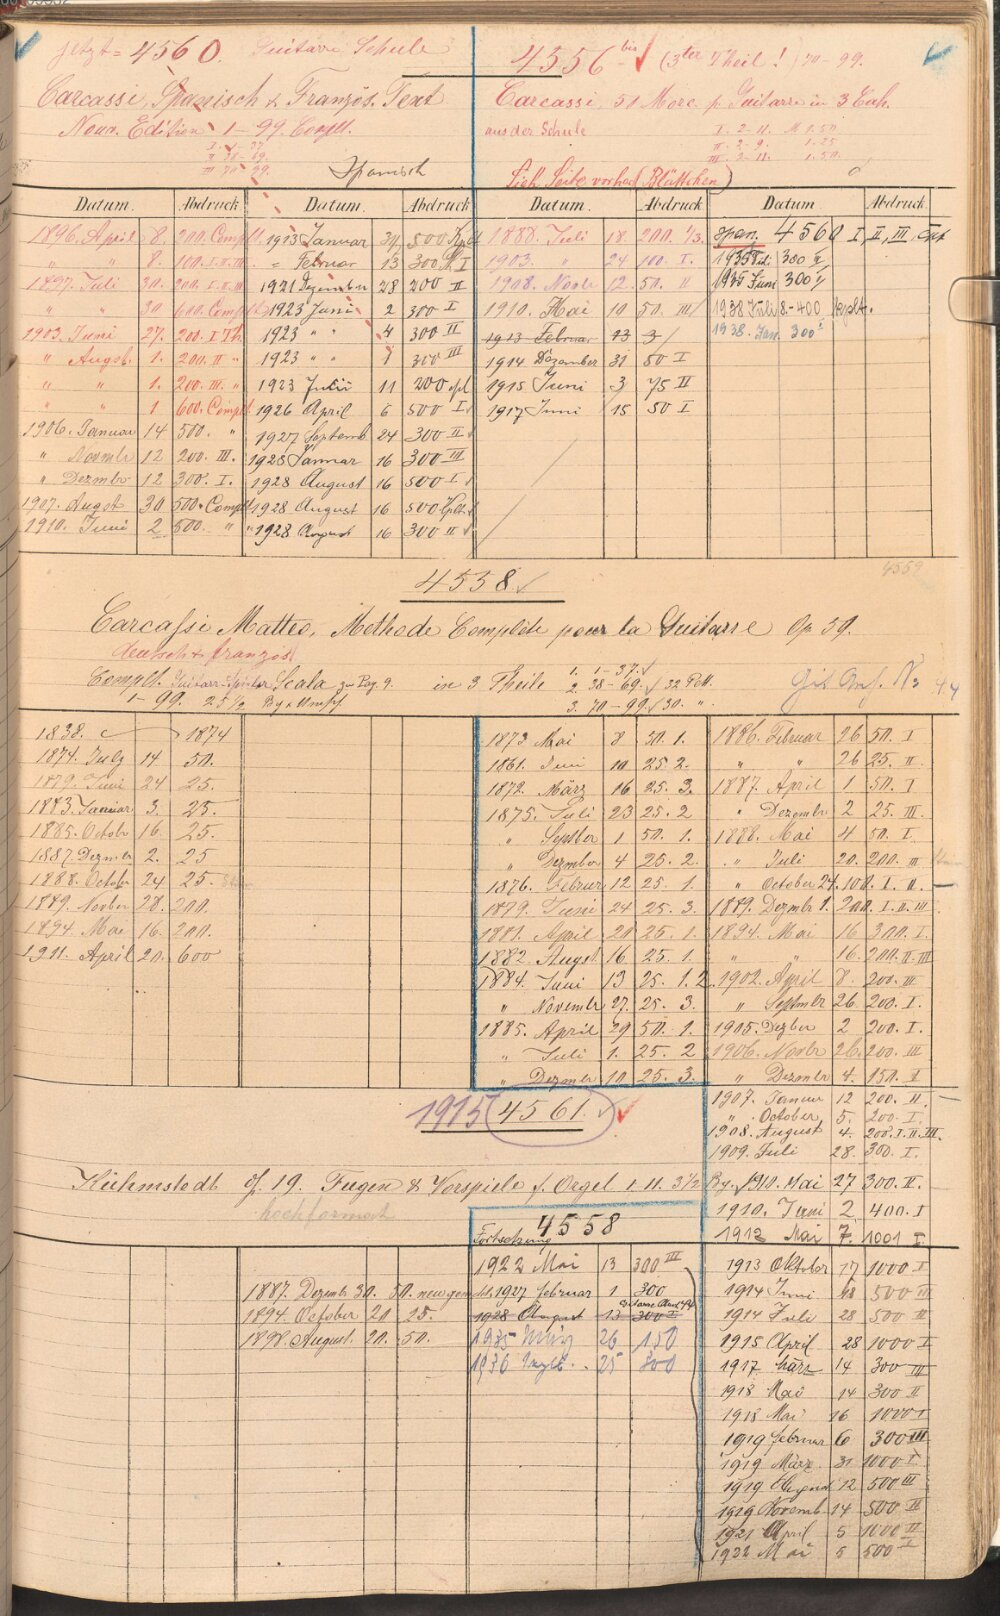 jetzt = 4560. Guitare Schule
Carcassi, Spanisch & Französ. Text
Nouv. Edition 1-99. Complt.
I. 1-37
II 38-69.
III 70-99.
Spanisch
4556 bis (3ter Theil!) 70-99.
Carcassi, 50 Morc. p. Guitarre in 3 Cah.
aus der Schule
I. 2-11. M 1.50
II. 2-9. 1.25
III. 2-11. 1.50.
Sieh Seite vorher (Blättchen)
Datum. Abdruck Datum. Abdruck Datum. Abdruck Datum Abdruck.
1896. April 8. 200. Complt.
" " 8. 100. I. II. III.
1897. Juli 30. 200. I. II. III
" " 30 600. Complt.
1903. Juni 27. 200. I Th.
" Augst. 1. 200. II "
" " 1. 200. III. "
" " 1 600. Complt.
1906. Januar 14 500. "
" Novmbr 12 200. III.
" Dezmbr 12 300. I.
1907. Augst 30 500. Complt.
1910. Juni 2 500. "
1913 Januar 31 500 Kplt
" Februar 13 300 I
1921 Dezember 28 200 II
1923 Juni 2 300 I
1923 " " 4 300 II
1923 " " 7 300 III
1923 Julii 11 200 cpl
1926 April 6 500 I
1927 Septemb 24 300 II
1928 Januar 16 300 III
1928 August 16 500 I
1928 August 16 500 Kplt.
1928 August 16 300 II
1888. Juli 18. 200. 1/3.
1903. " 24 100. I.
1908. Novbr 12. 50. II
1910. Mai 10 50. III
1913 Februar 13 3
1914 Dezember 31 50 I
1915 Juni 3 75 II
1917 Juni 15 50 I
span. 4560 I, II, III, Cplt
1935 Juni 300 II
1938 Juli 8. - 400 kplt.
1938. Jan. 300 I
4559
4558
Carcassi Matteo, Methode Complète pour la Guitarre Op 59.
deutsch & französ.
Complt. Guitarr-Spieler Scala zu Pag. 9. in 3 Theile
1-99. 25 1/2 Bg & Umschl
1. 1-37.
2. 38-69. 32 Pltt.
3. 70-99. 30. "
1838. 1874
1874. July 14 50.
1879. Juni 24 25.
1883. Januar. 3. 25.
1885. Octobr 16. 25.
1887. Dezmbr 2. 25
1888. October 24 25.
1889. Novber 28. 200.
1894. Mai 16. 200.
1911. April 20. 600
1873 Mai 8 50. 1.
1861. Juni 10 25. 2.
1872. März 16 25. 3.
1875. Juli 23 25. 2
" Septber 1 50. 1.
" Dezmber 4 25. 2.
1876. Februar 12 25. 1.
1879. Juni 24 25. 3.
1881. April 20 25. 1.
1882. Augst. 16 25. 1.
1884. Juni 13 25. 1.2.
" Novembr 27. 25. 3.
1885. April 29 50. 1.
" Juli 1. 25. 2
" Dezmbr 10 25. 3.
1886. Februar 26 50. I
" " 26 25. II.
1887. April 1 50. I
" Dezembr 2 25. III.
1888. Mai 4 50. I.
" Juli 20. 200. III
" October 24. 100. I. II.
1889. Dezmbr 1. 200. I. II. III.
1894. Mai 16 300. I.
" " 16. 200. II-III
1902. April 8. 200. III
" Septmbr 26 200. I.
1905. Dezber 2 200. I.
1906. Novbr 26. 200. III
" Dezmbr 4. 150. I
1907. Januar 12 200. II.
" October 5. 200. I.
1908. August 4. 200. I. II. III.
1909. Juli 28. 300. I.
1910. Mai 27 300. II.
1910. Juni 2 400. I
1912 Mai 7. 1001 I.
1915 4561.
Kühmstedt Op. 19. Fugen & Vorspiele f. Orgel 1. 11. 3 1/2 Bg.
hochformat
1887. Dezmbr 30. 50. neu gemacht
1894. October 20 25.
1898. August. 20. 50.
4558
Fortsetzung
1922 Mai 13 300 III
1927 februar 1 300
1928 August 13 300 II
1935 März 26 150
1936 25 300
1913 Oktober 17 1000 I
1914 Juni 18 500 III
1914 Juli 28 500 II
1915 April 28 1000 I
1917 März 14 300 III
1918 Mai 14 300 II
1918 Mai 16 1000 I
1919 februar 6 300 III
1919 März 31 1000 I
1919 August 12 500 III
1919 Novemb 14 500 II
1921 April 5 1000 II
1922 Mai 5 500 I